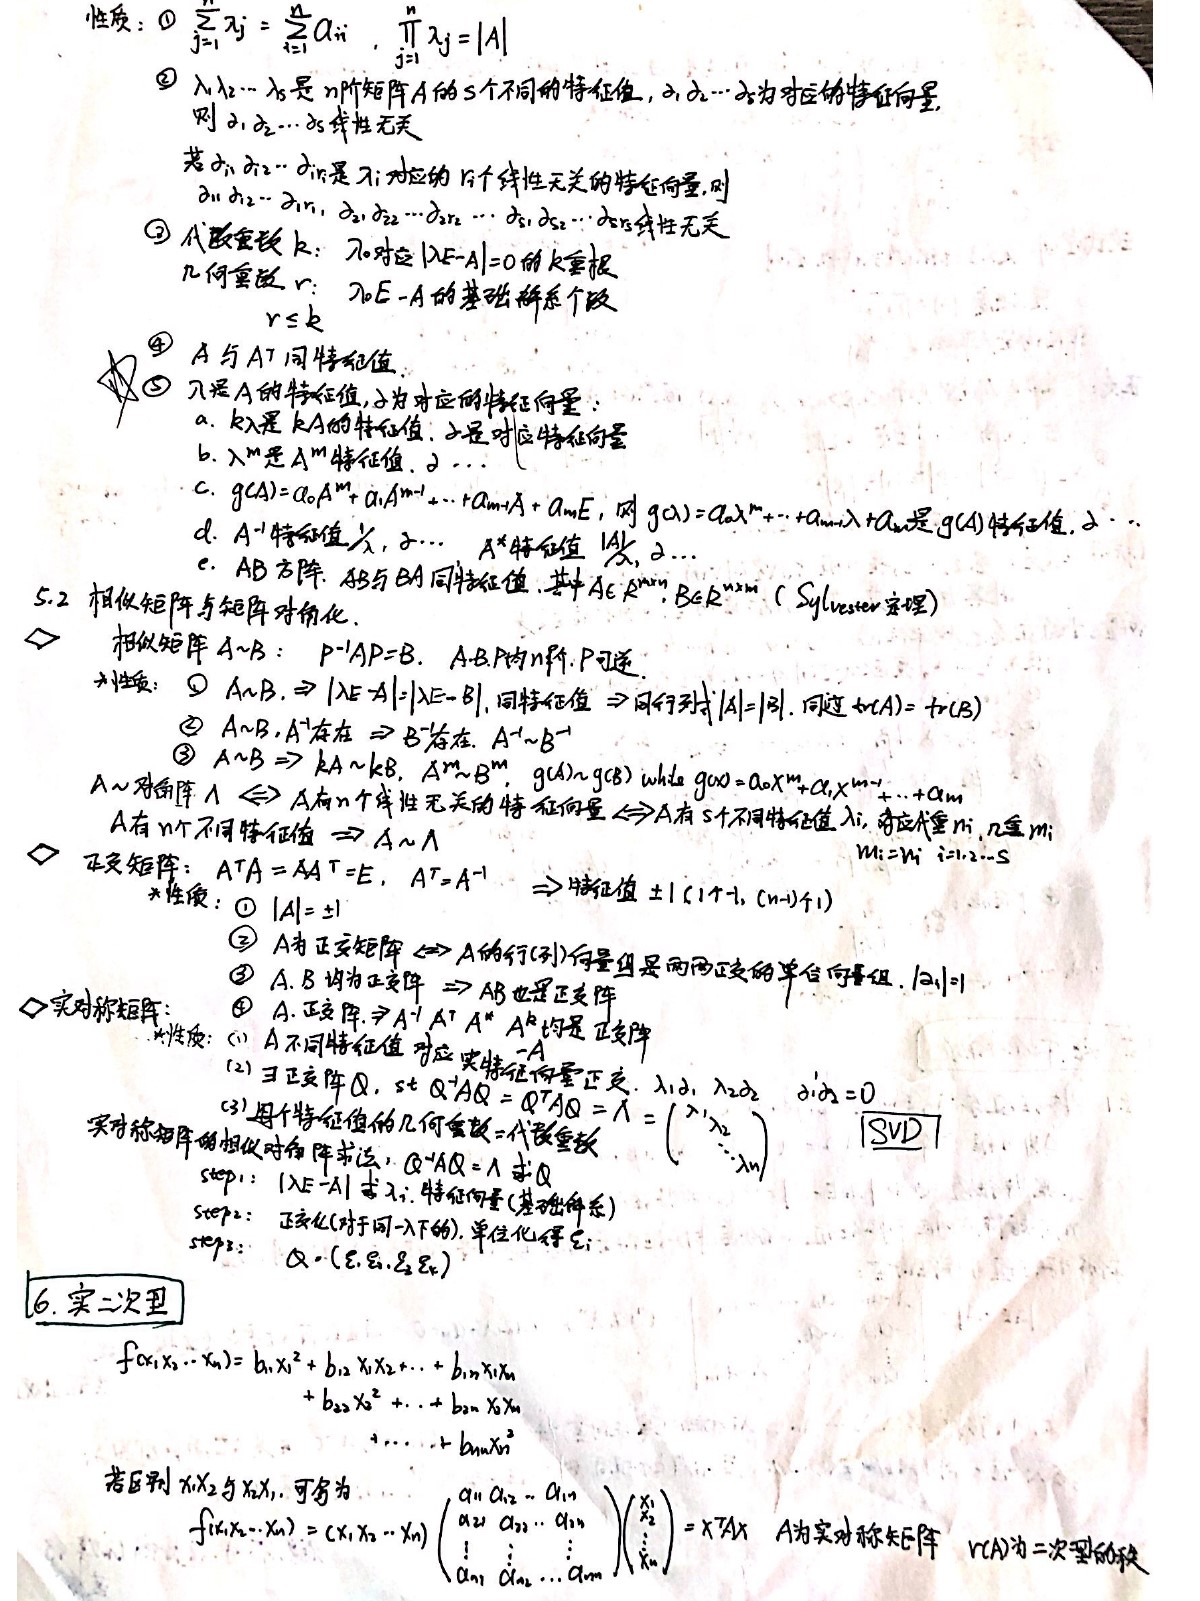 性质: ① ∑_{j=1}^{n} λj = ∑_{i=1}^{n} aii , ∏_{j=1}^{n} λj = |A|
② λ1 λ2 … λs 是 n阶矩阵A的 s个不同的特征值, α1 α2 … αs 为对应的特征向量,
则 α1 α2 … αs 线性无关
若 αi1 αi2 … αiri 是 λi 对应的 ri个线性无关的特征向量, 则
α11 α12 … α1r1, α21 α22 … α2r2 … αs1 αs2 … αsrs 线性无关
③ 代数重数 k: λ0对应 |λE-A|=0 的 k重根
几何重数 r: λ0E-A 的基础解系个数
r ≤ k
④ A 与 Aᵀ 同特征值.
⑤ λ是A的特征值, α为对应的特征向量:
a. kλ是 kA的特征值. α是对应特征向量
b. λᵐ是 Aᵐ特征值. α …
c. g(A)=a0Aᵐ+a1Aᵐ⁻¹+…+am-1A+amE, 则 g(λ)=a0λᵐ+…+am-1λ+am是 g(A)特征值. α …
d. A⁻¹特征值 1/λ, α… A*特征值 |A|/λ, α…
e. AB 方阵. AB与BA同特征值. 其中 A∈Rᵐˣⁿ, B∈Rⁿˣᵐ ( Sylvester 定理)
5.2 相似矩阵与矩阵对角化.
◇ 相似矩阵 A~B: P⁻¹AP=B. A.B.P均n阶. P可逆.
*性质: ① A~B. ⇒ |λE-A|=|λE-B|, 同特征值 ⇒ 同行列式|A|=|B|. 同迹 tr(A)= tr(B)
② A~B, A⁻¹存在 ⇒ B⁻¹存在. A⁻¹~B⁻¹
③ A~B ⇒ kA~kB, Aᵐ~Bᵐ, g(A)~g(B) while g(x)=a0xᵐ+a1xᵐ⁻¹+…+am
A~对角阵 Λ ⇔ A有n个线性无关的特征向量 ⇔ A有 s个不同特征值 λi, 对应代重 ni, 几重 mi
A有 n个不同特征值 ⇒ A~Λ mi=ni i=1.2…s
◇ 正交矩阵: AᵀA=AAᵀ=E, Aᵀ=A⁻¹ ⇒ 特征值 ±1 (1个-1, (n-1)个1)
*性质: ① |A|=±1
② A为正交矩阵 ⇔ A的行(列)向量组是两两正交的单位向量组. |α1|=1
③ A.B 均为正交阵 ⇒ AB也是正交阵
◇ 实对称矩阵: ④ A.正交阵. ⇒ A⁻¹ Aᵀ A* Aᵏ 均是正交阵
-A
*性质: (1) A不同特征值 对应 实特征向量正交. λ1α1 λ2α2 α1'α2=0
(2) ∃正交阵 Q, st Q⁻¹AQ = QᵀAQ = Λ = (λ1 λ2 ⋱ λn)
SVD
(3) 每个特征值的几何重数=代数重数
实对称矩阵的相似对角阵求法, Q⁻¹AQ=Λ 求Q
step1: |λE-A| 求 λi. 特征向量(基础解系)
step2: 正交化(对于同一λ下的). 单位化得 ξi
step3: Q=(ξ1 ξ2 ξ3 ξ4)
6. 实二次型
f(x1 x2 … xn)= b11x1²+ b12 x1x2+…+ b1n x1xn
+ b22 x2² +…+ b2n x2xn
+ …… + bnnxn²
若区别 x1x2与x2x1, 可写为
f(x1 x2 … xn) = (x1 x2 … xn) (a11 a12 … a1n a21 a22 … a2n ⋮ ⋮ ⋮ an1 an2 … ann) (x1 x2 ⋮ xn) = xᵀAx A为实对称矩阵 r(A)为二次型的秩